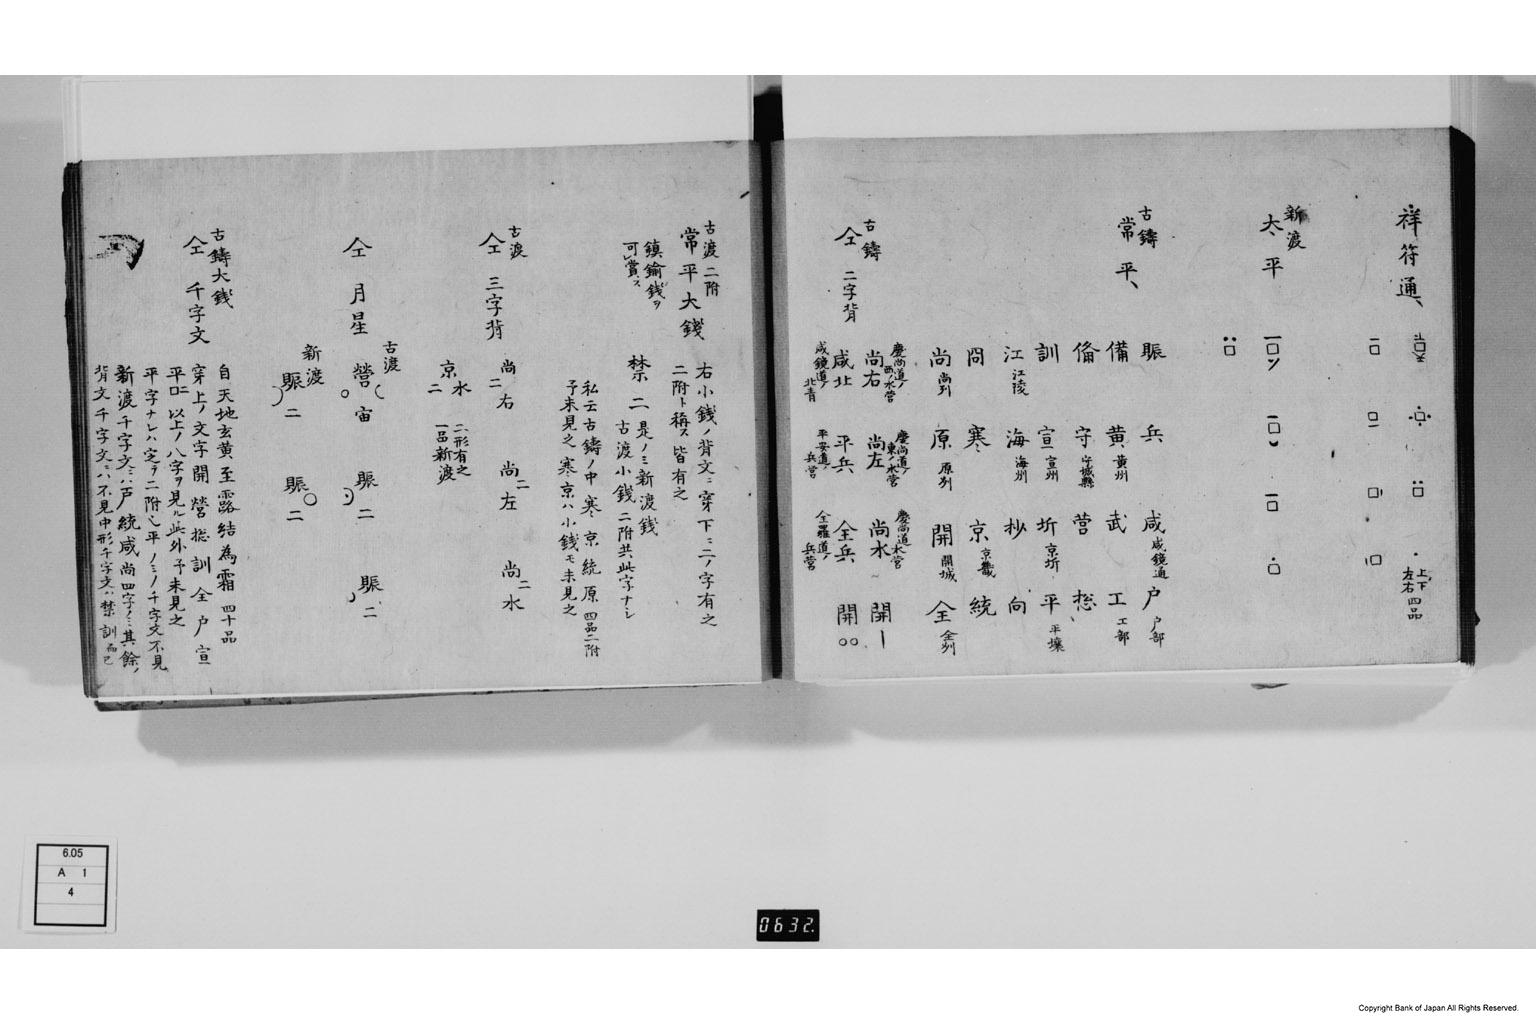 祥符通、
上下左右四品
新渡
大平
古鑄
常平、
賑 兵 咸 咸鏡道 戸 戸部
備 黄 黄州 武 工 工部
俻 守 守城縣 營 摠
訓 宣 宣州 圻 京圻 平 平壤
江 江陵 海 海州 抄 向
問 寒 京 京畿 統
尚 尚列 原 原列 開 開城 仝 全列
古鑄
仝 二字背
尚右 慶尚道ノ西ノ水営 尚左 慶尚道ノ東ノ水営 尚水 慶尚道水営 開一
咸北 咸鏡道ノ北青 平兵 平安道ノ兵営 全兵 全羅道ノ兵営 開○○
古渡 二附
常平大錢 右小錢ノ背文ニ穿下ニ二ノ字有之
二附ト称ス皆有之
鎮鍮錢ヲ可賞ス
禁二 是ノミ新渡錢
古渡小錢二附共此字ナシ
私云古鑄ノ中寒京統原四品二附
予未見之寒京ハ小錢モ未見之
古渡
仝 三字背 尚右二 尚左二 尚水二
京水二 二形有之一品新渡
仝月星
古渡
營 宙 賑二 賑二
新渡
賑二 賑二
古鑄大錢
仝 千字文 自天地玄黄至露結為霜 四十品
穿上ノ文字開營摠訓全戸宣
平口二以上ノ八字ヲ見ル此外予未見之
平字ナレハ定ヲ二附也平ノミノ千字文不見
新渡千字文ニハ戸統咸尚四字ノミ其餘ノ
背文千字文ニハ不見中形千字文ハ禁訓而已
6.05
A 1
4
0632.
Copyright Bank of Japan All Rights Reserved.